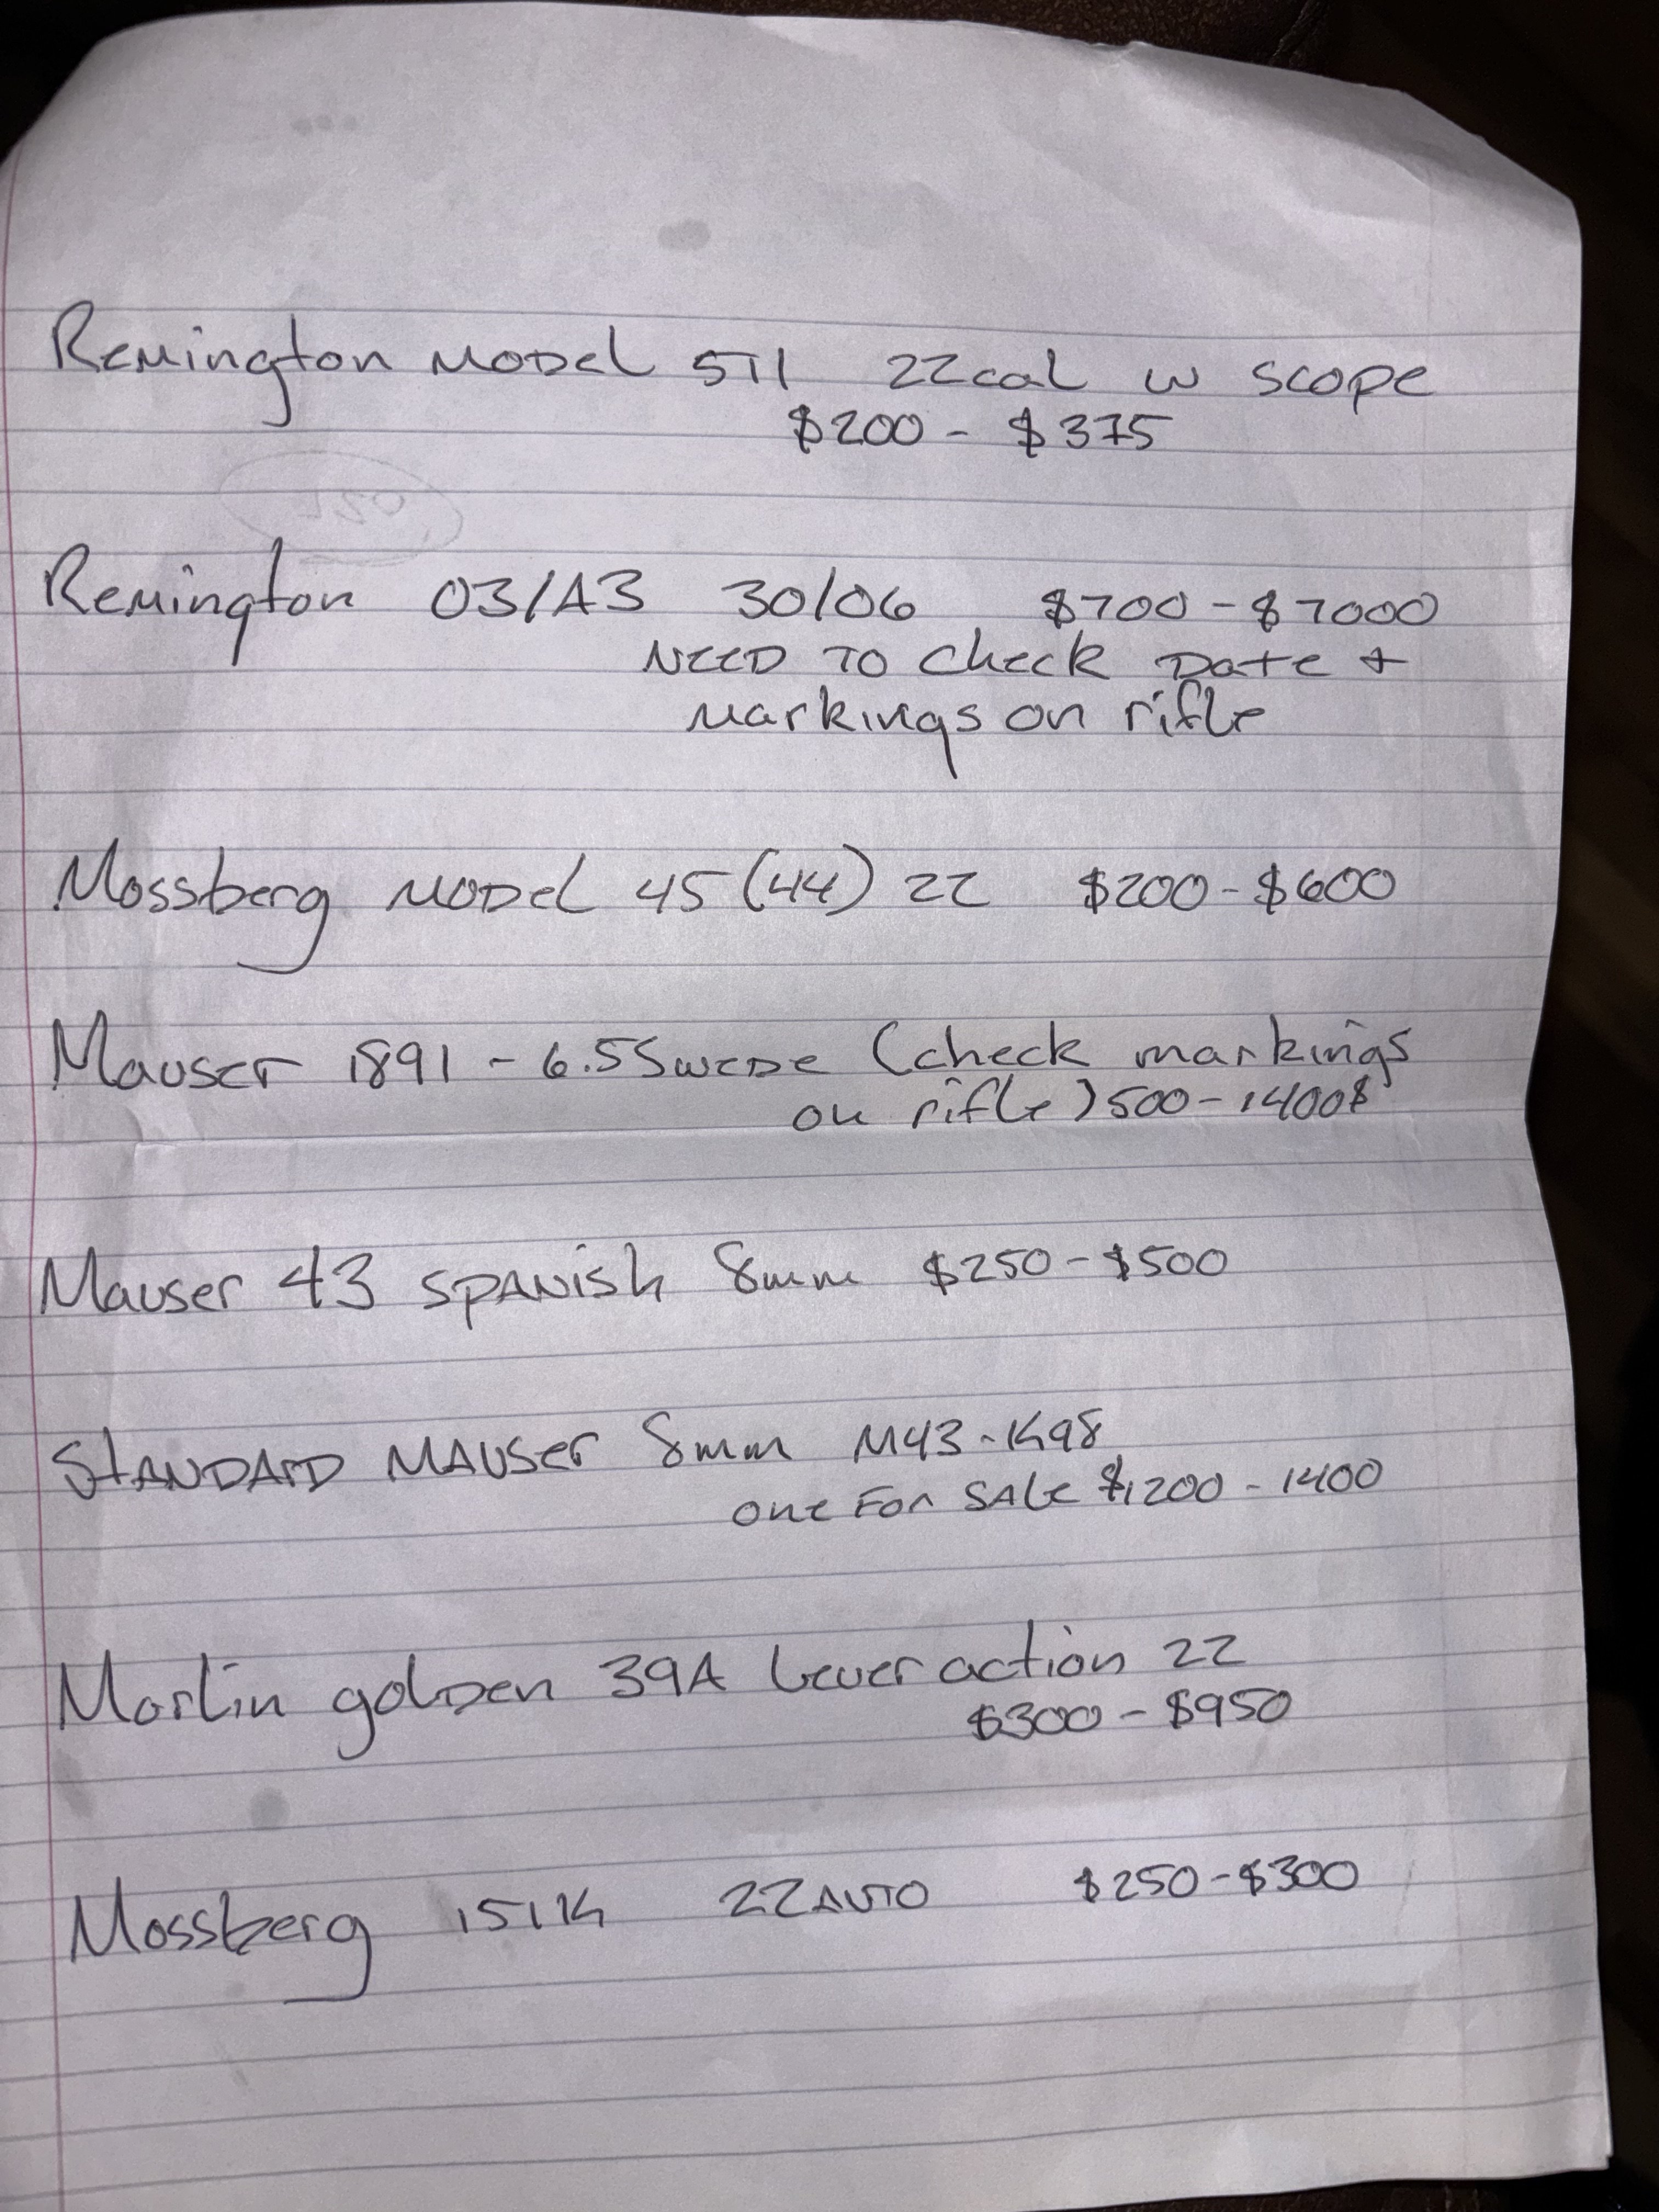 Remington Model 511 22cal w scope
$200 - $375
Remington 03/A3 30/06 $700 - $7000
NEED TO check Date +
markings on rifle
Mossberg Model 45 (44) 22 $200 - $600
Mauser 1891 - 6.5 Swede (check markings
on rifle) 500 - 1400$
Mauser 43 Spanish 8mm $250 - $500
STANDARD MAUSER 8mm M43 - K98
one For Sale $1200 - 1400
Marlin golden 39A lever action 22
$300 - $950
Mossberg 151K 22 AUTO $250 - $300